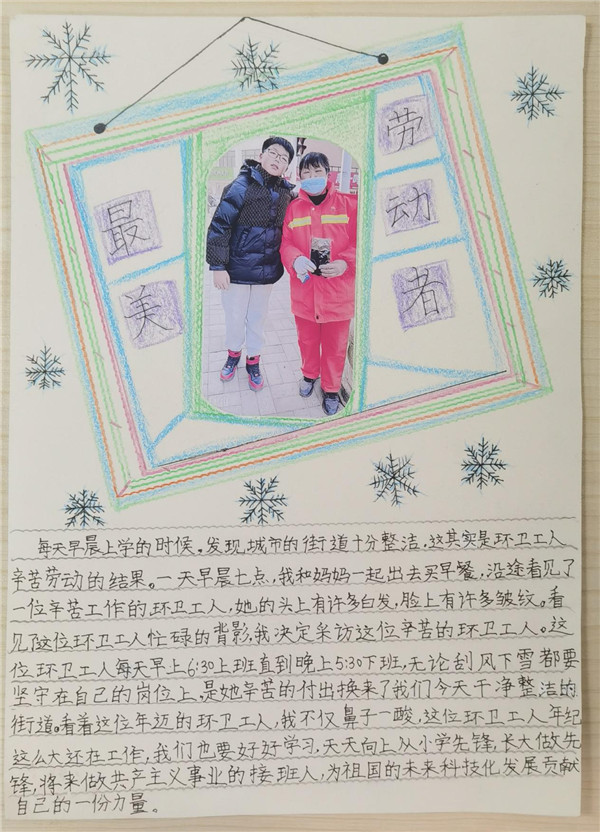 最美
劳动者
每天早晨上学的时候，发现城市的街道十分整洁，这其实是环卫工人
辛苦劳动的结果。一天早晨七点，我和妈妈一起出去买早餐，沿途看见了
一位辛苦工作的环卫工人，她的头上有许多白发，脸上有许多皱纹。看
见了这位环卫工人忙碌的背影，我决定采访这位辛苦的环卫工人。这
位环卫工人每天早上6:30上班直到晚上5:30下班，无论刮风下雪都要
坚守在自己的岗位上，是她辛苦的付出换来了我们今天干净整洁的
街道。看着这位年迈的环卫工人，我不仅鼻子一酸，这位环卫工人年纪
这么大还在工作，我们也要好好学习，天天向上从小学先锋，长大做先
锋，将来做共产主义事业的接班人，为祖国的未来科技化发展贡献
自己的一份力量。